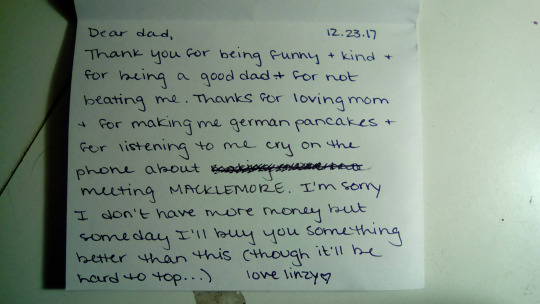 Dear dad, 12.23.17
Thank you for being funny + kind +
for being a good dad + for not
beating me. Thanks for loving mom
+ for making me german pancakes +
for listening to me cry on the
phone about
meeting MACKLEMORE. I'm sorry
I don't have more money but
someday I'll buy you something
better than this (though it'll be
hard to top...) love linzy♡